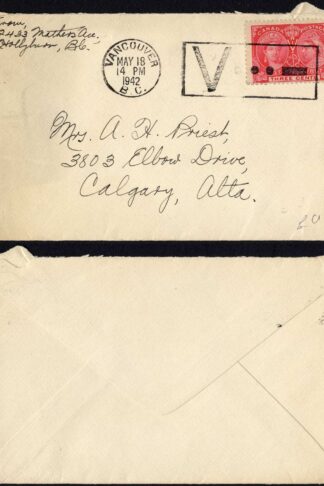 from,
2433 Mathers Ave.
Hollyburn, B.C.
VANCOUVER
MAY 18
14 PM
1942
B.C.
V
CANADA POSTAGE
THREE CENTS
Mrs. A. H. Priest,
3803 Elbow Drive,
Calgary, Alta.